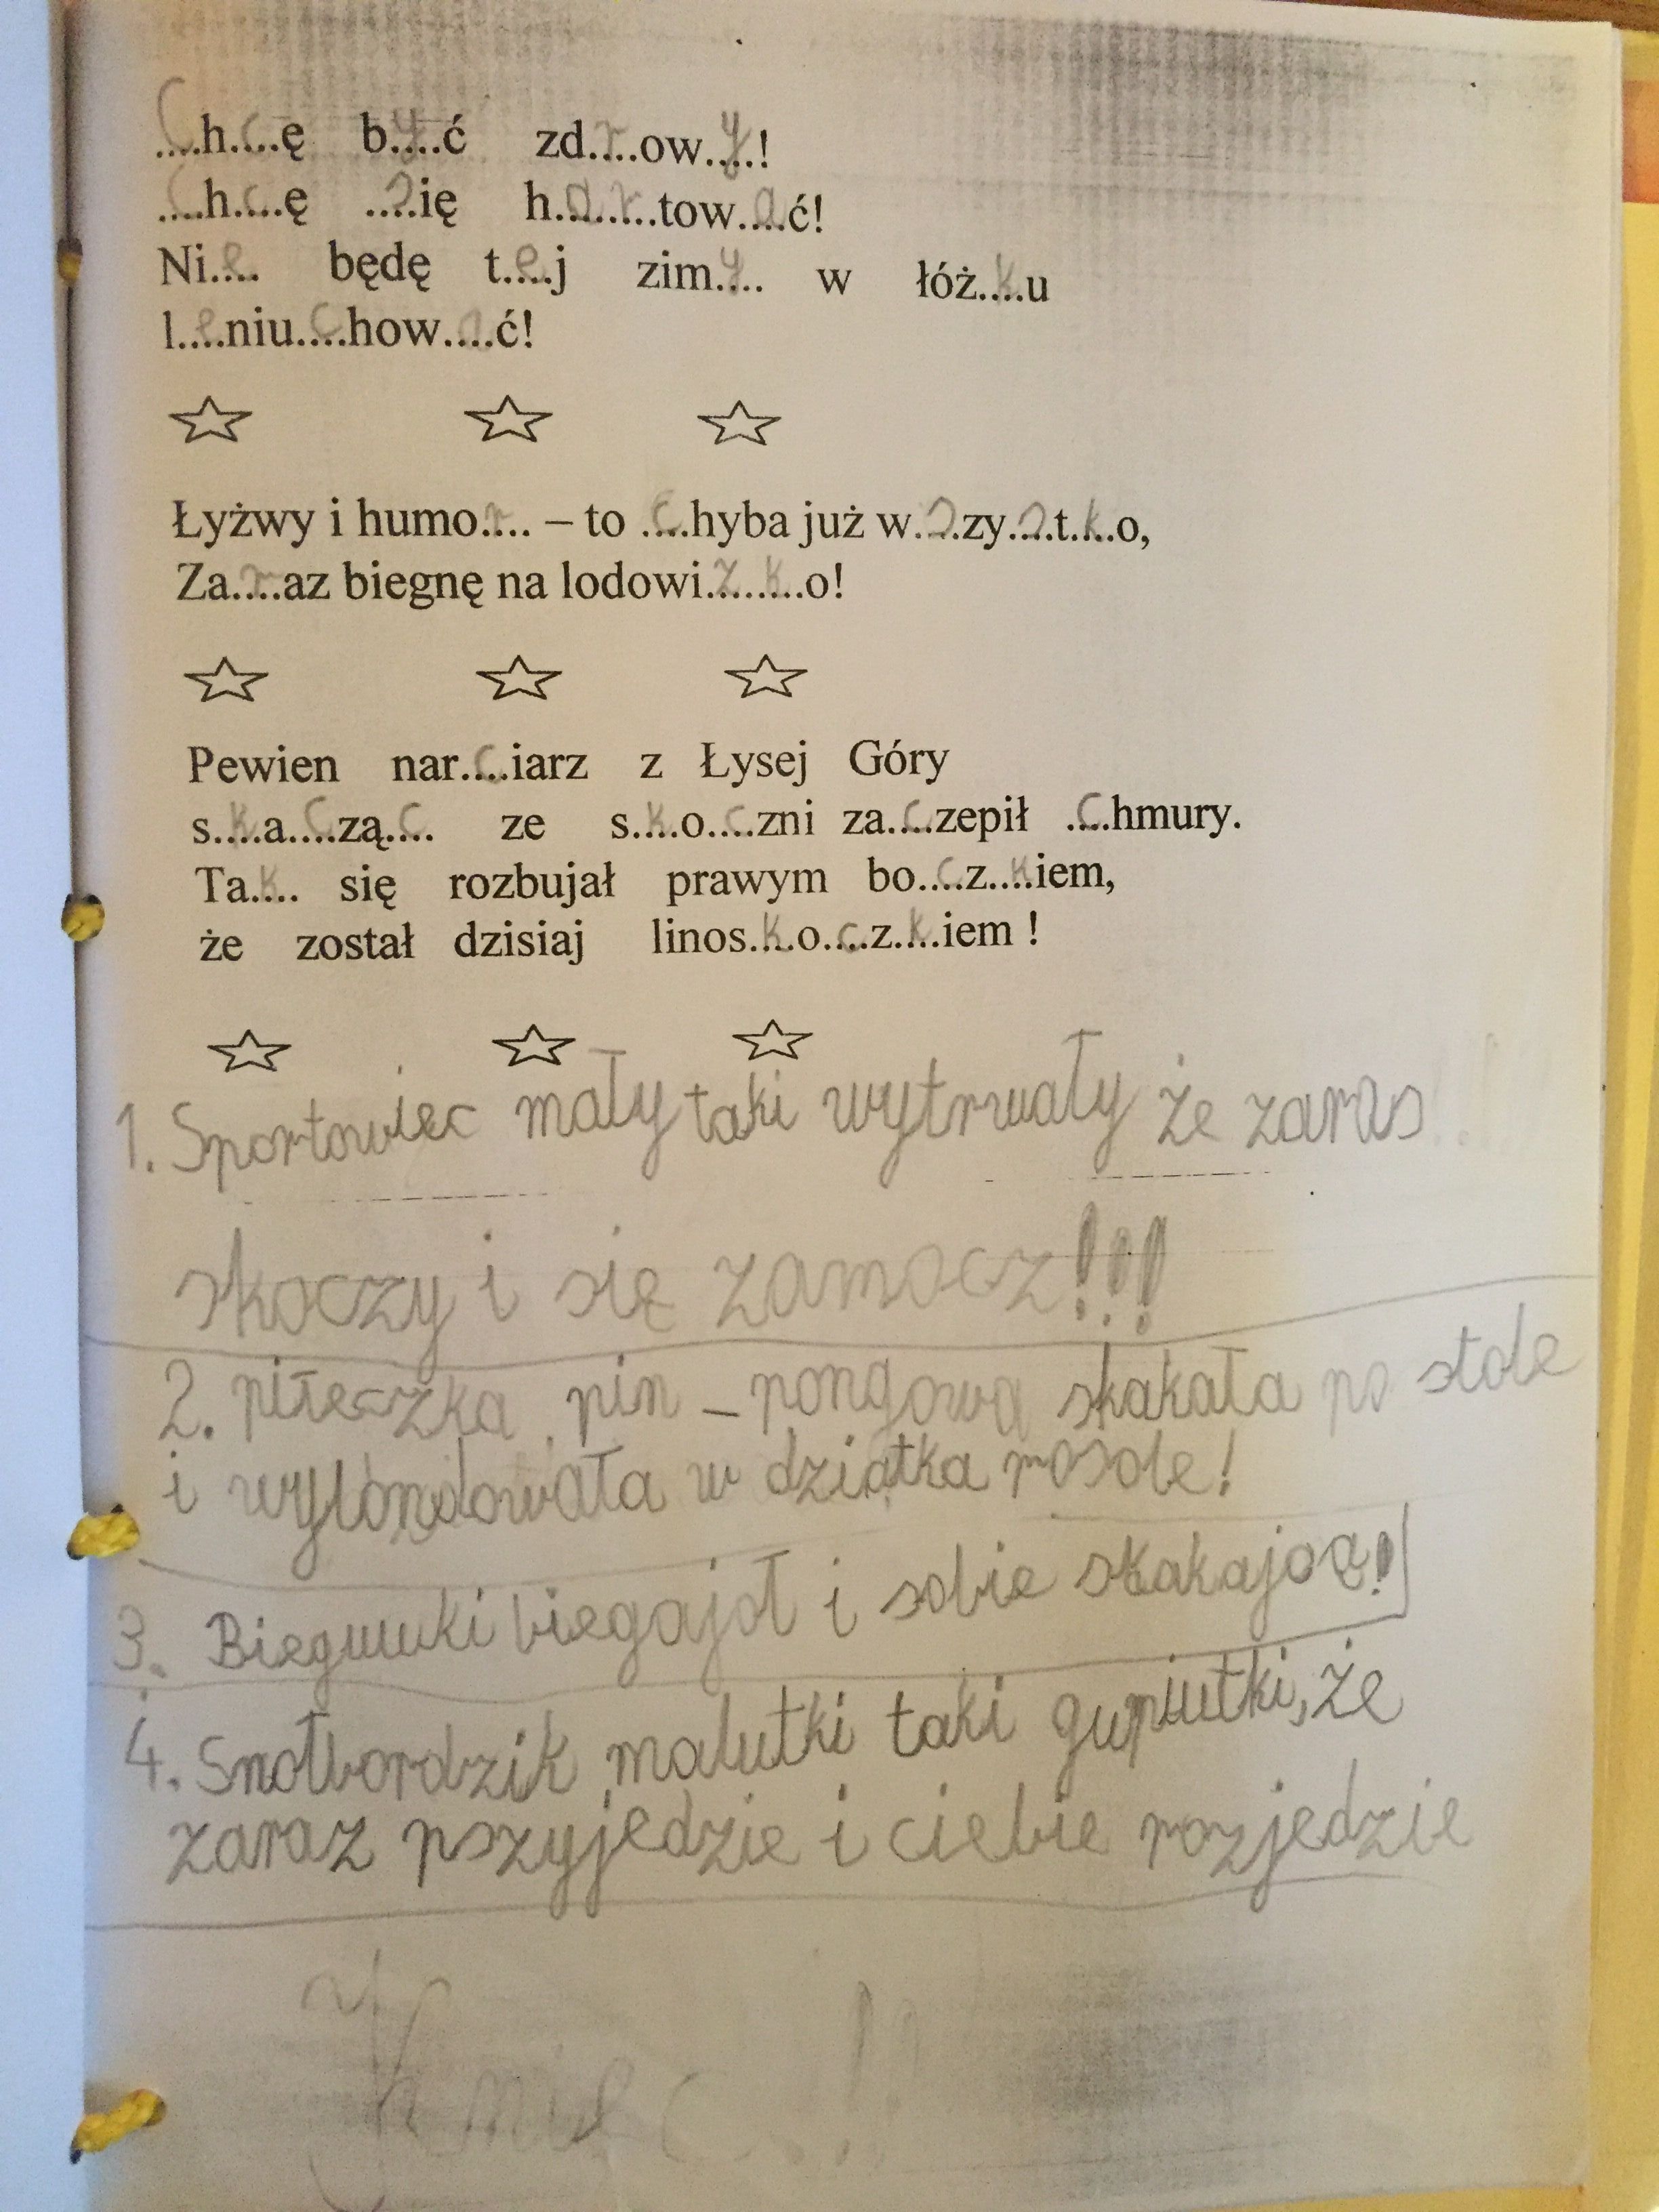 C....h.c...ę b..y..ć zd..r..ow..y..!
C....h.c...ę ..s..ię h..a....r..tow..a..ć!
Ni..e.. będę t..e..j zim..y.. w łóż..k..u
l..e..niu..c..how..a..ć!
Łyżwy i humo..r.. – to ..c..hyba już w..s..zy..s..t..k..o,
Za..r..az biegnę na lodowi..z....k..o!
Pewien nar..c..iarz z Łysej Góry
s..k..a..c..zą..c.. ze s..k..o..c..zni za..c..zepił ..c..hmury.
Ta..k.. się rozbujał prawym bo..c..z..k..iem,
że został dzisiaj linos..k..o..c..z..k..iem !
1. Sportowiec mały taki wytrwały że zaras
skoczy i się zamocz!!!
2. piłeczka pin – pongowa skakała po stole
i wylondowała w dziatka rosole!
3. Bieguwki biegajoł i sobie skakajoą!
4. Snołbordzik malutki taki gupiutki, że
zaraz pszyjedzie i ciebie rozjedzie